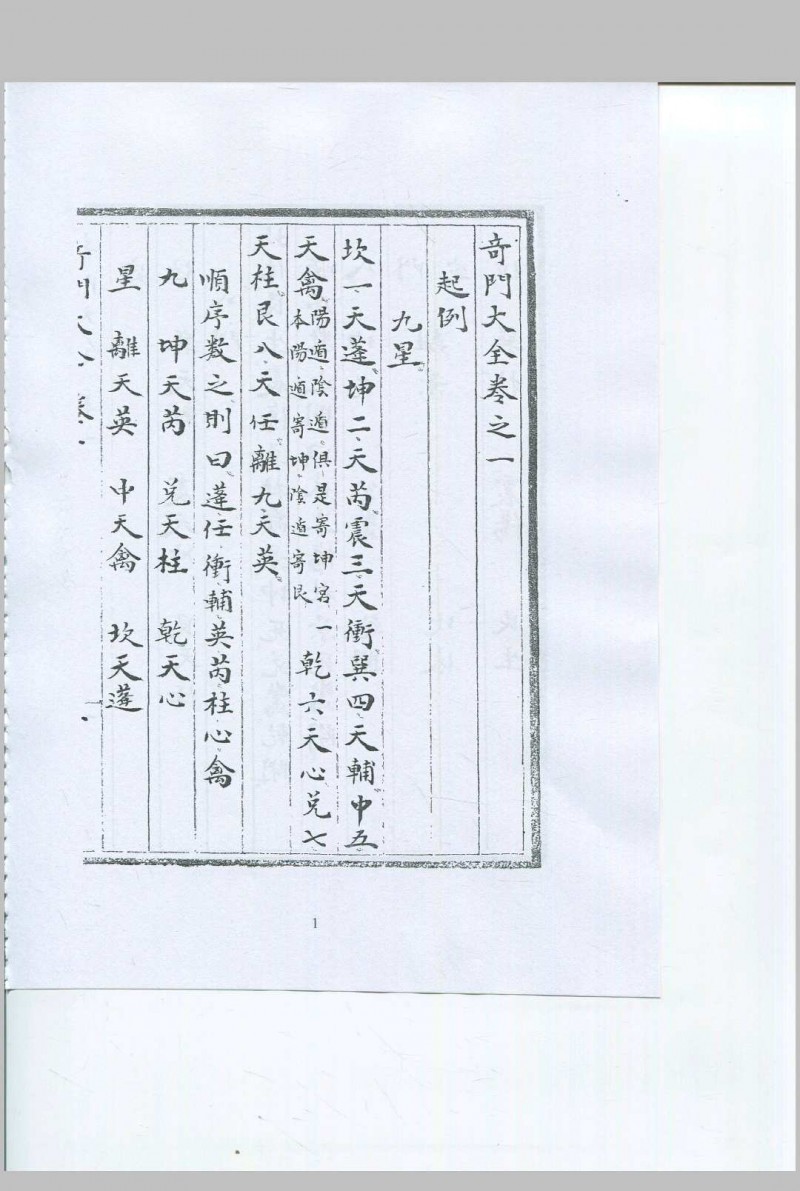 奇門大全卷之一
起例
九星
坎一天蓬坤二天芮震三天衝巽四天輔中五
天禽陽遁陰遁俱是寄坤宮一
本陽遁寄坤陰遁寄艮
乾六天心兌七
天柱艮八天任離九天英
順序數之則曰蓬任衝輔英芮柱心禽
九 坤天芮 兌天柱 乾天心
星 離天英 中天禽 坎天蓬
奇門大全卷一
1